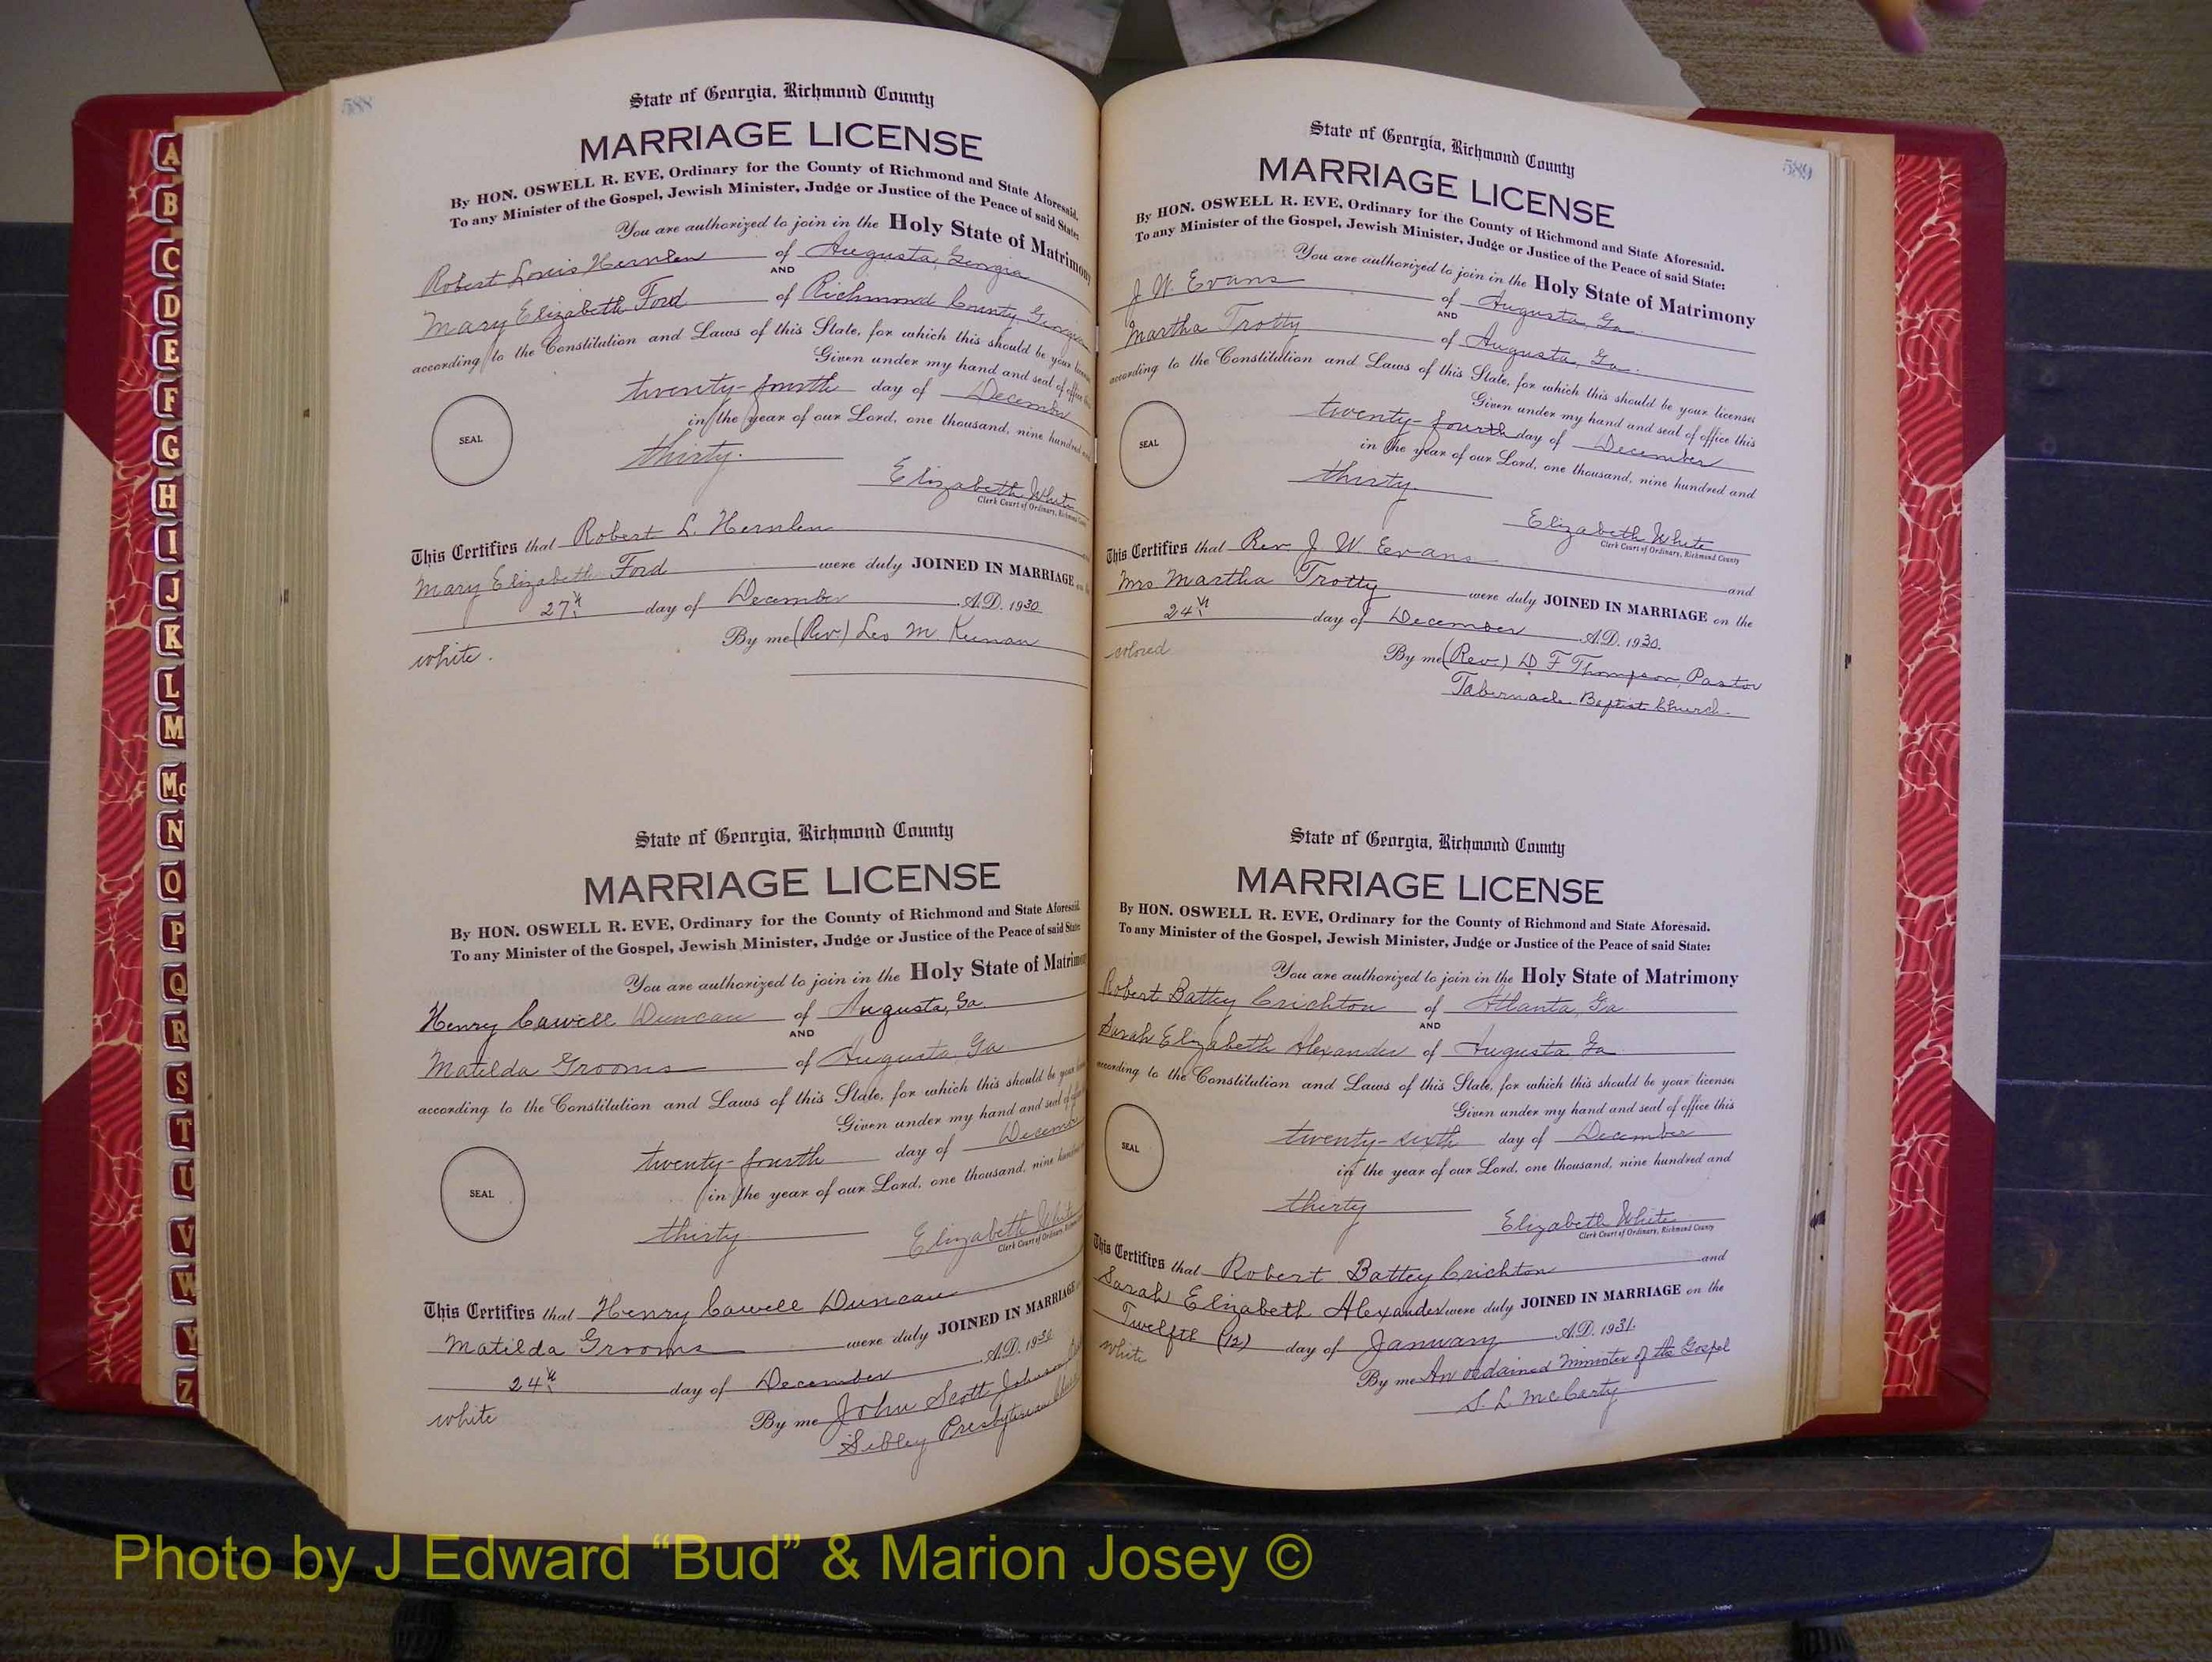 A
B
C
D
E
F
G
H
I
J
K
L
M
Mc
N
O
P
Q
R
S
T
U
V
W
Y
Z
588
State of Georgia, Richmond County
MARRIAGE LICENSE
By HON. OSWELL R. EVE, Ordinary for the County of Richmond and State Aforesaid.
To any Minister of the Gospel, Jewish Minister, Judge or Justice of the Peace of said State:
You are authorized to join in the Holy State of Matrimony
Robert Louis Hernlen of Augusta, Georgia
AND
Mary Elizabeth Ford of Richmond County, Georgia
according to the Constitution and Laws of this State, for which this should be your
Given under my hand and seal of office
twenty-fourth day of December
SEAL
in the year of our Lord, one thousand, nine hundred
thirty.
Elizabeth White
Clerk Court of Ordinary, Richmond
This Certifies that Robert L. Hernlen
Mary Elizabeth Ford were duly JOINED IN MARRIAGE
27th day of December A.D. 1930
By me (Rev) Leo M Keenan
white.
State of Georgia, Richmond County
MARRIAGE LICENSE
By HON. OSWELL R. EVE, Ordinary for the County of Richmond and State Aforesaid.
To any Minister of the Gospel, Jewish Minister, Judge or Justice of the Peace of said State:
You are authorized to join in the Holy State of Matrimony
Henry Cawell Duncan of Augusta, Ga
AND
Matilda Grooms of Augusta, Ga
according to the Constitution and Laws of this State, for which this should be your
Given under my hand and seal of
twenty-fourth day of December
SEAL
in the year of our Lord, one thousand, nine hundred
thirty
Elizabeth White
Clerk Court of Ordinary,
This Certifies that Henry Cawell Duncan
Matilda Grooms were duly JOINED IN MARRIAGE
24th day of December A.D. 1930
white
By me John Scott Johnson
Sibley Presbyterian Church
589
State of Georgia, Richmond County
MARRIAGE LICENSE
By HON. OSWELL R. EVE, Ordinary for the County of Richmond and State Aforesaid.
To any Minister of the Gospel, Jewish Minister, Judge or Justice of the Peace of said State:
You are authorized to join in the Holy State of Matrimony
J. W. Evans of Augusta, Ga.
AND
Martha Trotty of Augusta, Ga.
according to the Constitution and Laws of this State, for which this should be your licenses
Given under my hand and seal of office this
twenty-fourth day of December
SEAL
in the year of our Lord, one thousand, nine hundred and
thirty.
Elizabeth White
Clerk Court of Ordinary, Richmond County
This Certifies that Rev J. W. Evans and
Mrs Martha Trotty were duly JOINED IN MARRIAGE on the
24th day of December A.D. 1930.
colored
By me (Rev.) D. F Thompson, Pastor
Tabernacle Baptist Church.
State of Georgia, Richmond County
MARRIAGE LICENSE
By HON. OSWELL R. EVE, Ordinary for the County of Richmond and State Aforesaid.
To any Minister of the Gospel, Jewish Minister, Judge or Justice of the Peace of said State:
You are authorized to join in the Holy State of Matrimony
Robert Battey Crichton of Atlanta, Ga
AND
Sarah Elizabeth Alexander of Augusta, Ga
according to the Constitution and Laws of this State, for which this should be your licenses
Given under my hand and seal of office this
twenty-sixth day of December
SEAL
in the year of our Lord, one thousand, nine hundred and
thirty
Elizabeth White
Clerk Court of Ordinary, Richmond County
This Certifies that Robert Battey Crichton and
Sarah Elizabeth Alexander were duly JOINED IN MARRIAGE on the
Twelfth (12) day of January A.D. 1931.
white
By me An ordained minister of the Gospel
S. L McCarty
Photo by J Edward “Bud” & Marion Josey ©